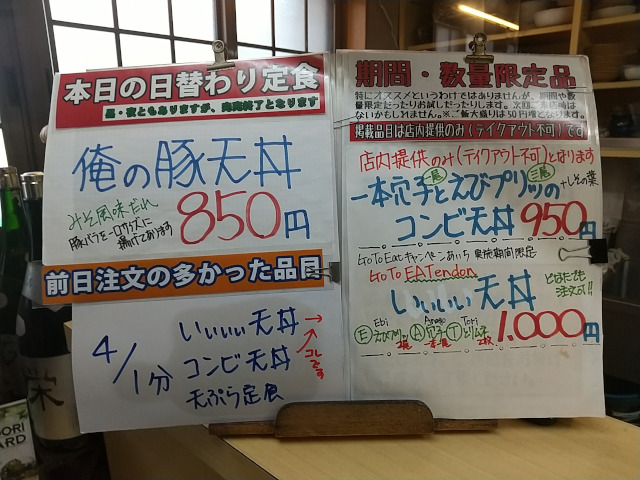 本日の日替わり定食
昼・夜ともありますが、完売終了となります
俺の豚天丼
みそ風味だれ
豚バラを一口サイズに
揚げてあります
850円
前日注文の多かった品目
4/1分
いいいい天丼→
コンビ天丼
天ぷら定食
コレです
期間・数量限定品
特にオススメというわけではありませんが、期間や数
量限定だったりお試しだったりします。次回ご来店時は
ないかもしれません。※ご飯大盛りは50円増となります。
掲載品目は店内提供のみ(テイクアウト不可)です
店内提供のみ(テイクアウト不可)となります
一本穴子とえびプリッの+しその葉
コンビ天丼 950円
Go To Eat キャンペーンあいち 実施期間限定
Go To EATendon
いいいい天丼
どなたでも
注文可!!
Ebi Anago Tori
1.000円